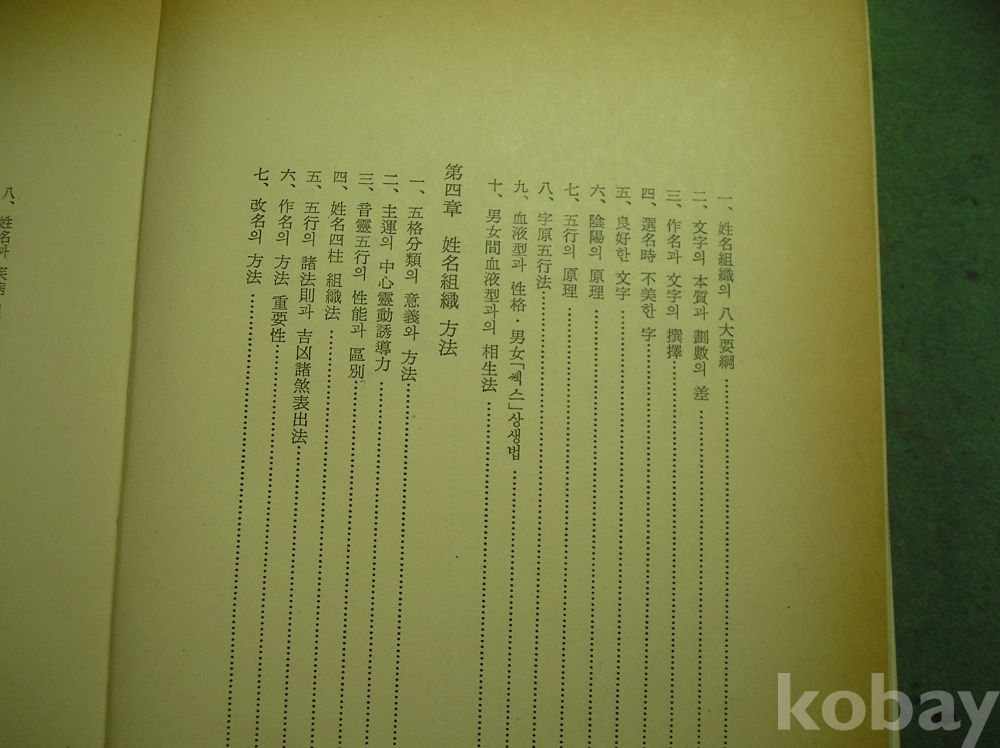 一、姓名組織의 八大要綱
二、文字의 本質과 劃數의 差
三、作名과 文字의 撰擇
四、選名時 不美한 字
五、良好한 文字
六、陰陽의 原理
七、五行의 原理
八、字原五行法
九、血液型과 性格·男女「쎅스」상생법
十、男女間血液型과의 相生法
第四章 姓名組織 方法
一、五格分類의 意義와 方法
二、主運의 中心靈動誘導力
三、音靈五行의 性能과 區別
四、姓名四柱 組織法
五、五行의 諸法則과 吉凶諸煞表出法
六、作名의 方法 重要性
七、改名의 方法
八、姓名과 疾病
kobay